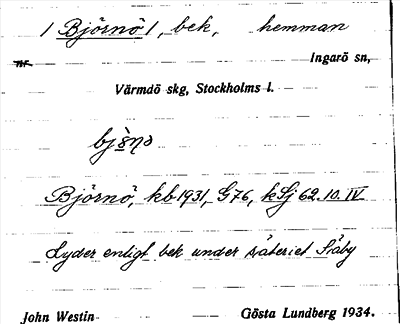 / Björnö /, bek, hemman
nr. Ingarö sn,
Värmdö skg, Stockholms l.
Björnö, kb 1931, G76, kSj 62.10.IV
Lyder enligt bek under säteriet Säby
John Westin Gösta Lundberg 1934.